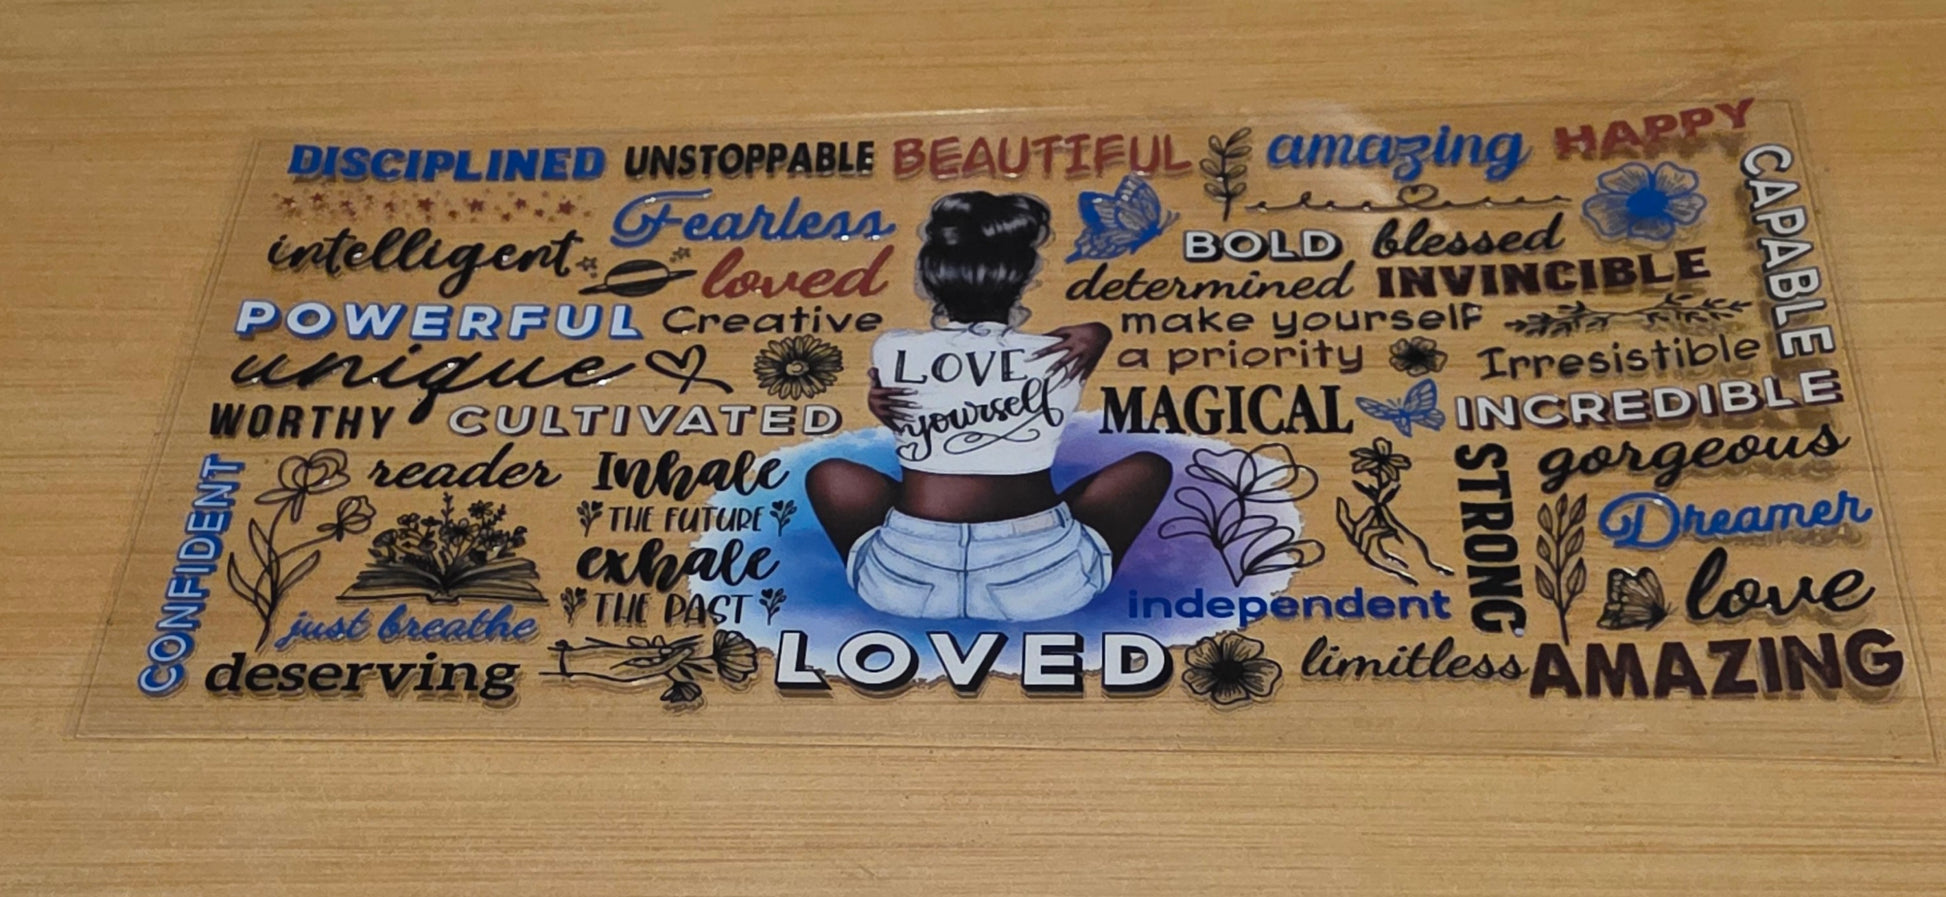 DISCIPLINED UNSTOPPABLE BEAUTIFUL amazing HAPPY
Fearless
intelligent
loved
BOLD blessed
determined INVINCIBLE
CAPABLE
POWERFUL Creative
make yourself
a priority
Irresistible
unique
LOVE
yourself
WORTHY CULTIVATED
MAGICAL INCREDIBLE
CONFIDENT
reader
Inhale
THE FUTURE
exhale
THE PAST
STRONG
gorgeous
Dreamer
love
just breathe
independent
deserving
LOVED
limitless AMAZING